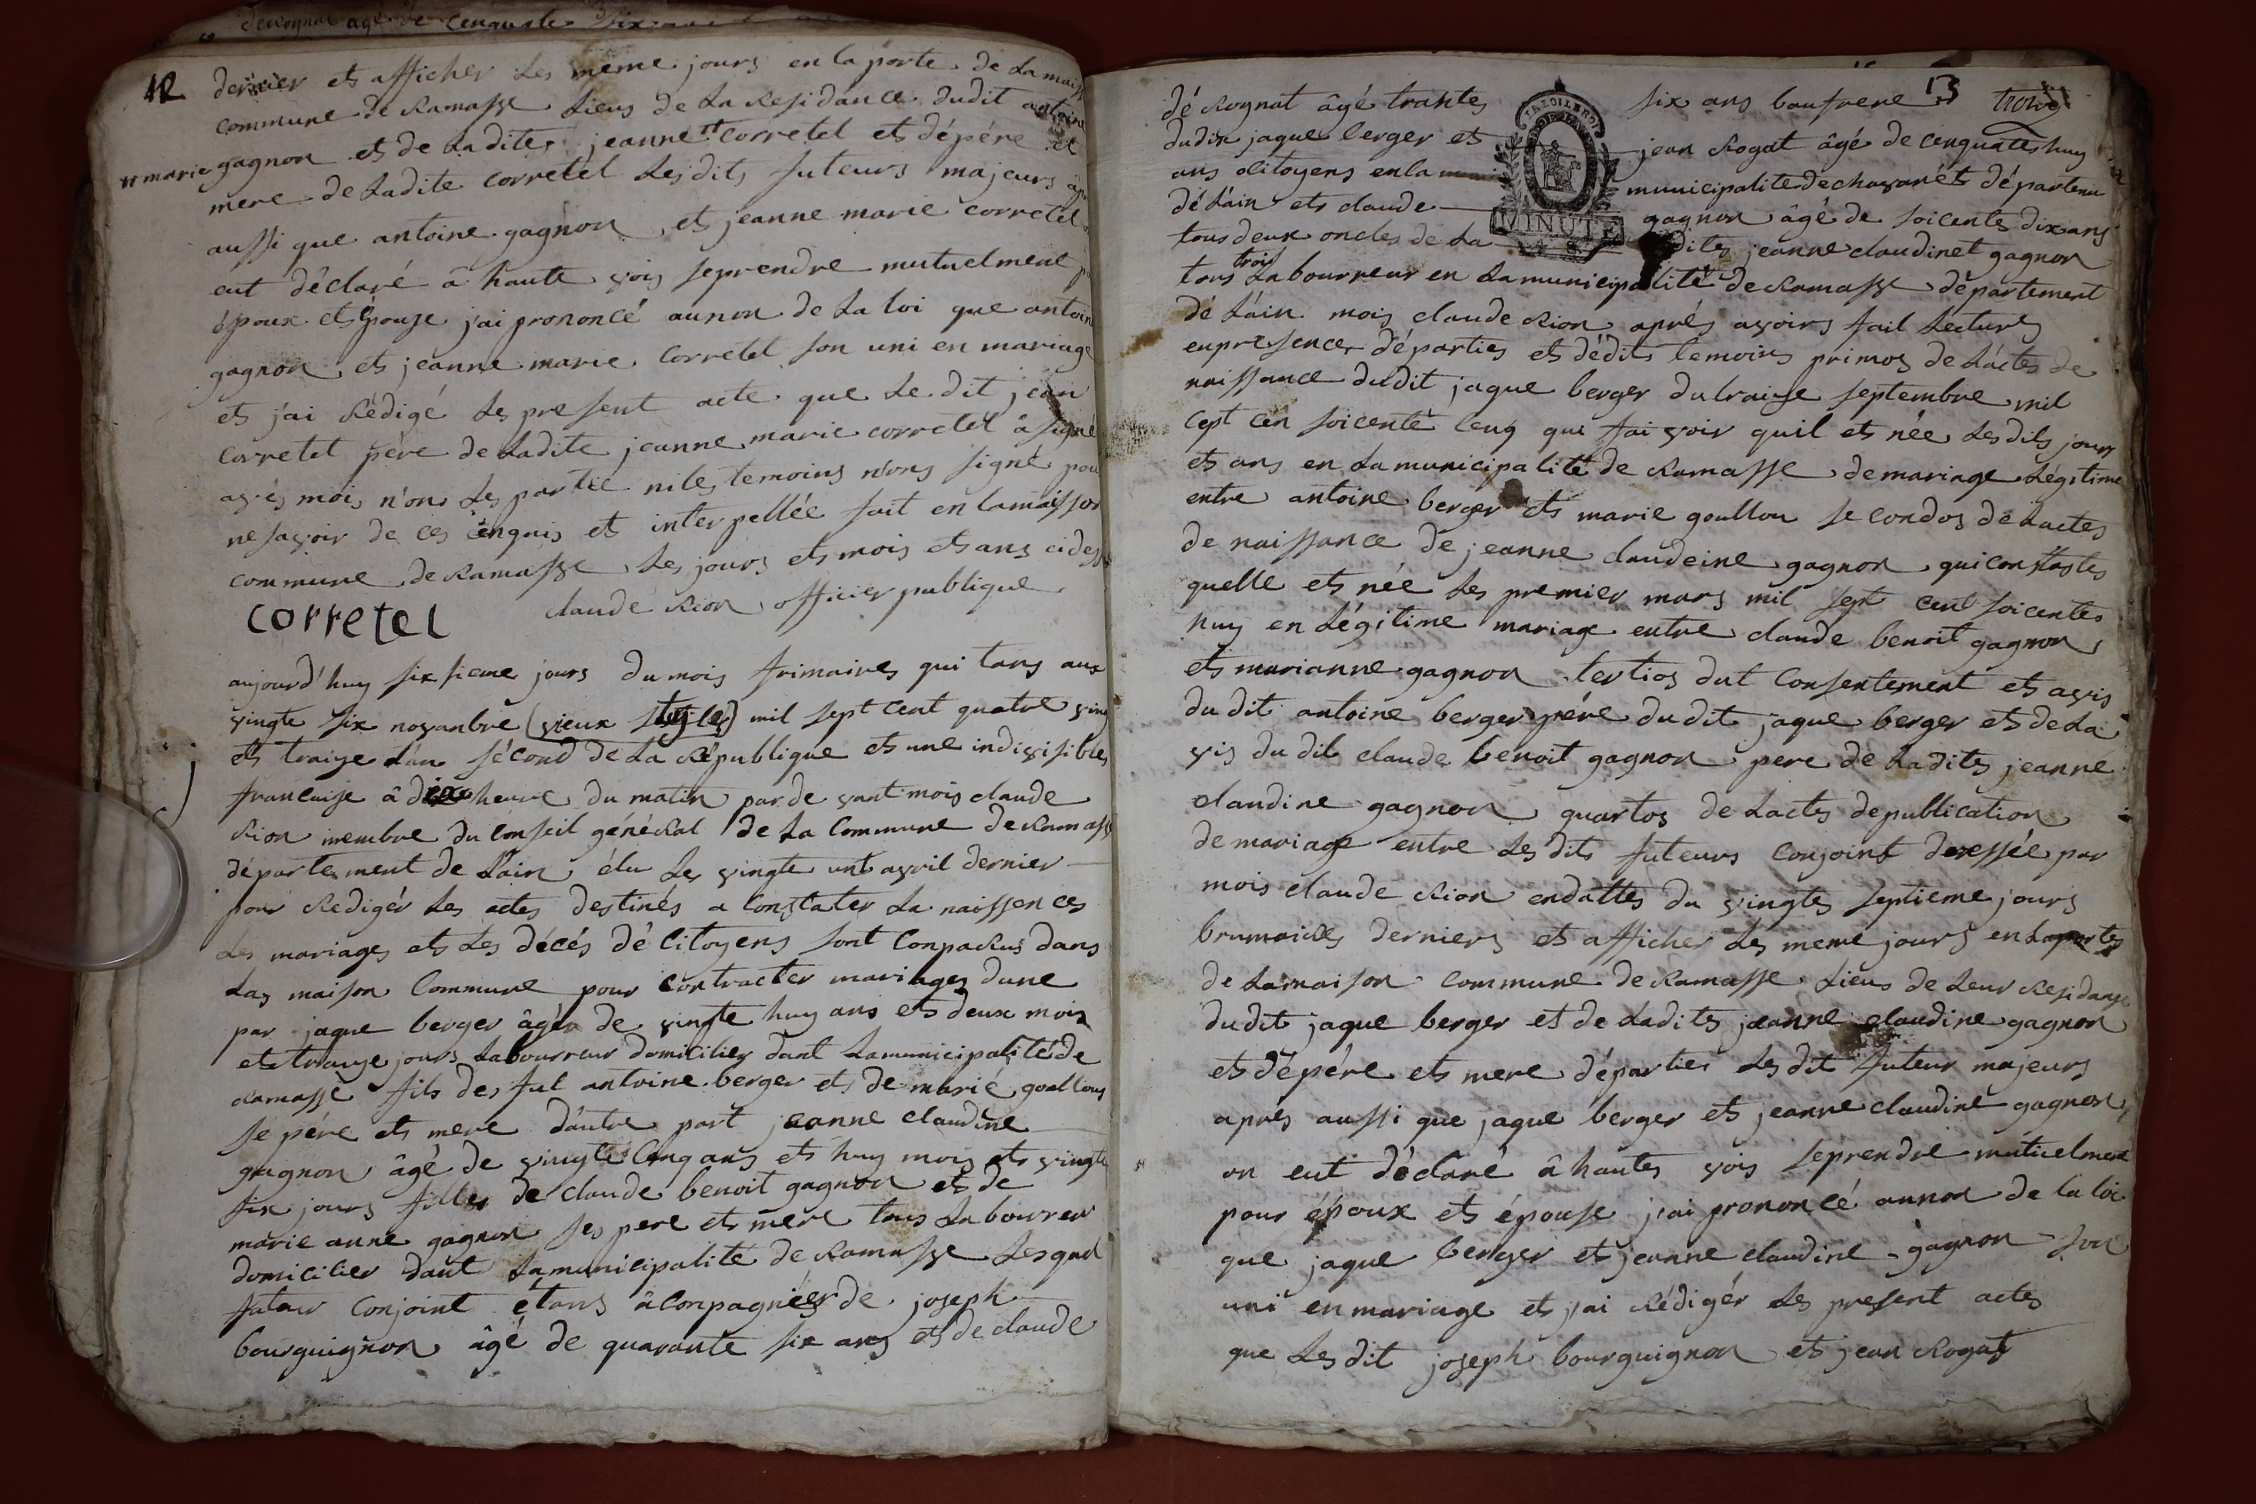 12
dernier ets afficher les meme jours en la porte de la mais
commune de Ramasse lieus de la Residance dudit antoine
# marie gagnon ets de ladites jeanne # corretel ets dépére et
mere de ladite corretel lesdits futeurs majeurs
aussi que antoine gagnon ets jeanne marie corretel
eut déclaré â haute vois seprendre mutuelment
époux ets épouse j'ai prononcé aunon de la loi que antoin
gagnon ets jeanne marie corretel son uni en mariage
ets j'ai Rédigé les present acte que le dit jean
corretel père de ladite jeanne marie corretel â signé
avés mois n'on les partie niles temoins n'ons signé pou
nesavoir de ces enquis et interpellée fait en lamaisson
commune de Ramasse les jours ets mois ets ans cidess
corretel claude Rion officier publique
aujourd'huy sixsieme jours du mois frimaires qui tans aux
vingte six novanbre (vieux stile) mil sept cent quatre vin
ets traize l'an sécond de la République ets une indivisibles
francaise â dix heure du matin parde vant mois claude
Rion membre du conseil généRal de la commune deRamass
départesment de l'ain élu les vingte unt avril dernier
pour Redigér les actes destinés a constater la naissences
les mariages ets les décés dé citoyens sont conparus dans
las maison commune pour contracter mariages dune
par jaque berger âgér de vingte huy ans ets deux mois
ets traize jours labourreur domicilier dant lamunicipalité de
Ramasse fils des fut antoine berger ets de marié goullous
se pére ets mere d'autre part jeanne claudine
gagnon âgé de vingte cinq ans ets huy mois ets vingte
six jours filles de claude benoit gagnon et de
marie anne gagnon ses pere ets mere tous labourreur
domicilier dant lamunicipalite de Ramasse lesquel
futeur conjoint étans âconpagnéer de joseph
bourguignon âgé de quarante six ans ets de claude
13
dé Rognat âgé trantes six ans bausrere
dudit jaque berger et jean Rogat âgé de cenquates huy
ans citoyens enla municipalitedechavanéts départenu
dé l'ain ets claude gagnon âgé de soicente dix ans
MINUTE
tous deux oncles de la dites jeanne claudinet gagnon
trois
tous labourreur en lamunicipalité de Ramasse département
dé l'ain mois claude Rion aprés avoirs fait lectures
enpresence départies ets dédits temoins primos de láctes de
naissance dudit jaque berger du traize septembre mil
cept cen soicente cenq qui fai voir quil ets née les dits jours
ets ans en la municipalité de Ramasse de mariage légitime
entre antoine berger ets marie goullou secondos de lactes
de naissance de jeanne claudeine gagnon qui constastes
quelle ets née les premier mars mil sept cent soicentes
huy en légitime mariage entre claude benoit gagnon
ets marianne gagnon tertios dut consentement ets avis
dudit antoine berger pére dudit jaque berger ets de la
vis du dit claude benoit gagnon pere de ladites jeanne
claudine gagnon quartos de lactes depublication
de mariage entre les dits futeurs conjoint deressée par
mois claude Rion endattes du vingtes septieme jours
brumaires derniers ets afficher lés meme jours en laportes
de lamaison commune de Ramasse lieus de leur Residanse
dudit jaque berger et de ladites jeanne claudine gagnon
ets dépére ets mere départies les dit futeur majeurs
aprés aussi que jaque berger ets jeanne claudine gagnon
on eut déclaré â hautes vois seprendre mutuelment
pour époux ets épouse j'ai prononcé aunon de la loi
que jaque berger et jeanne claudine gagnon son
uni en mariage ets j'ai Rédigér les present actes
que les dit joseph bourguignon ets jean Rogat